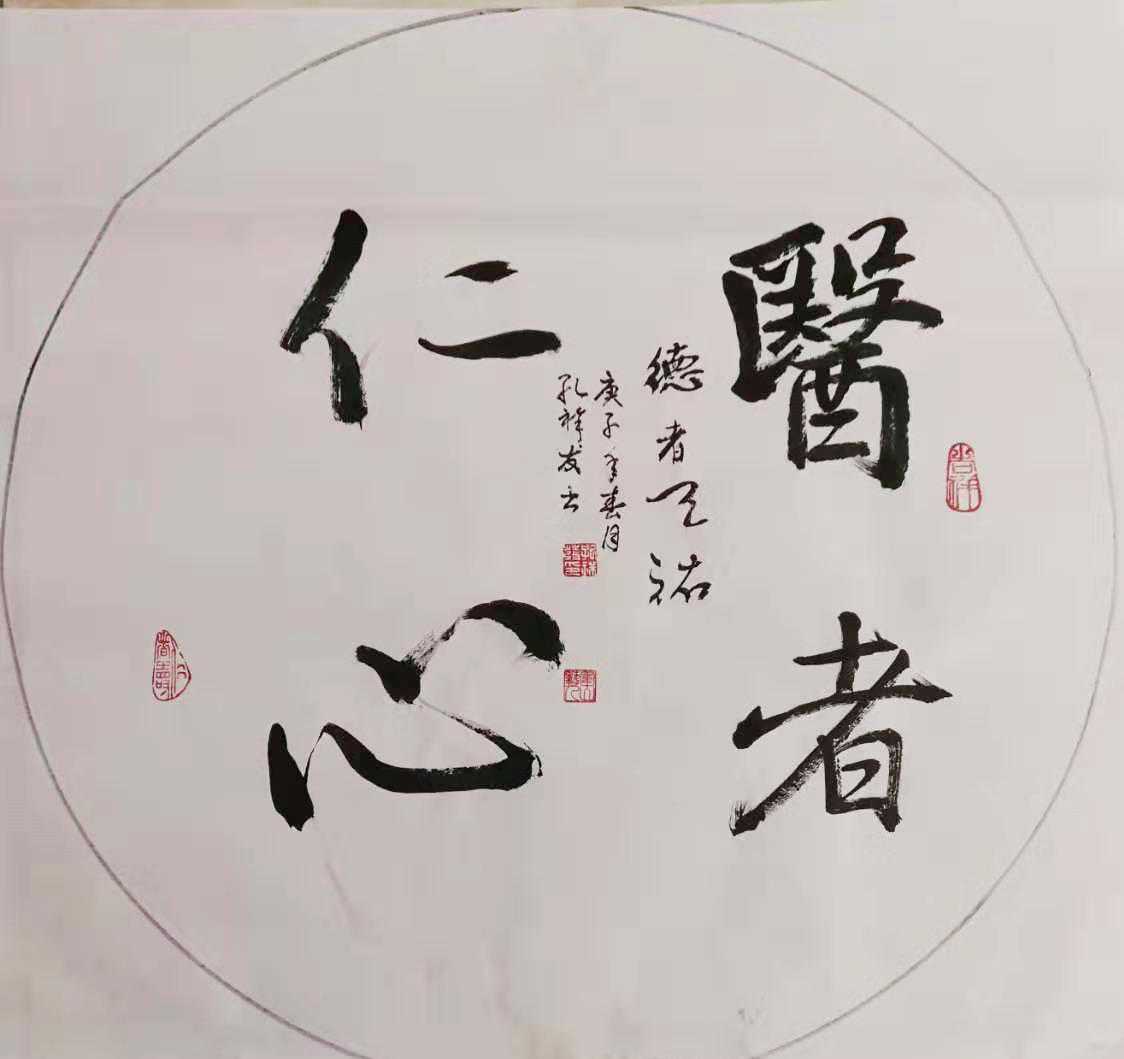 醫者
仁心
德者天祐
庚子年春月
孔祥友书
吉祥